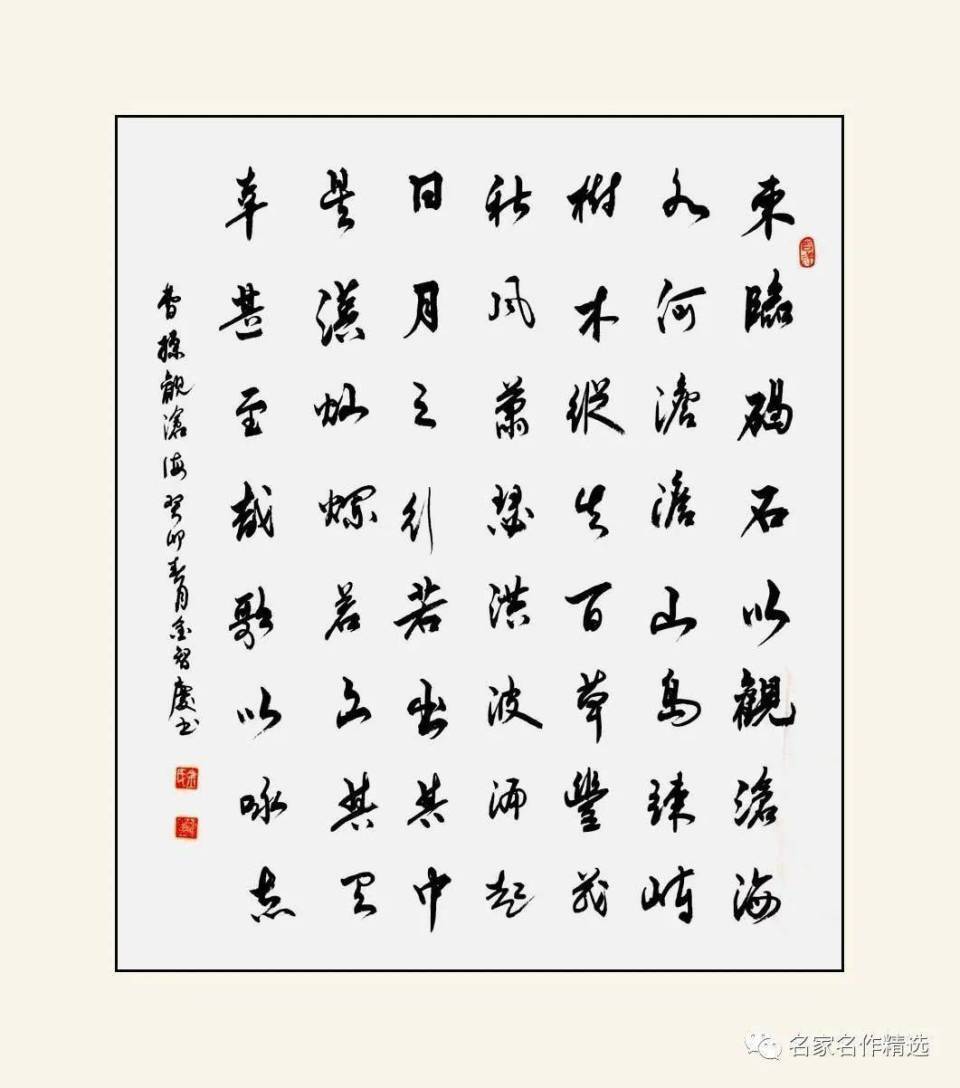 東臨碣石以觀滄海
水何澹澹山島竦峙
樹木縱生百草豐茂
秋風蕭瑟洪波涌起
日月之行若出其中
星漢灿爛若出其里
幸甚至哉歌以咏志
曹操觀滄海癸卯春月金智慶书
名家名作精选